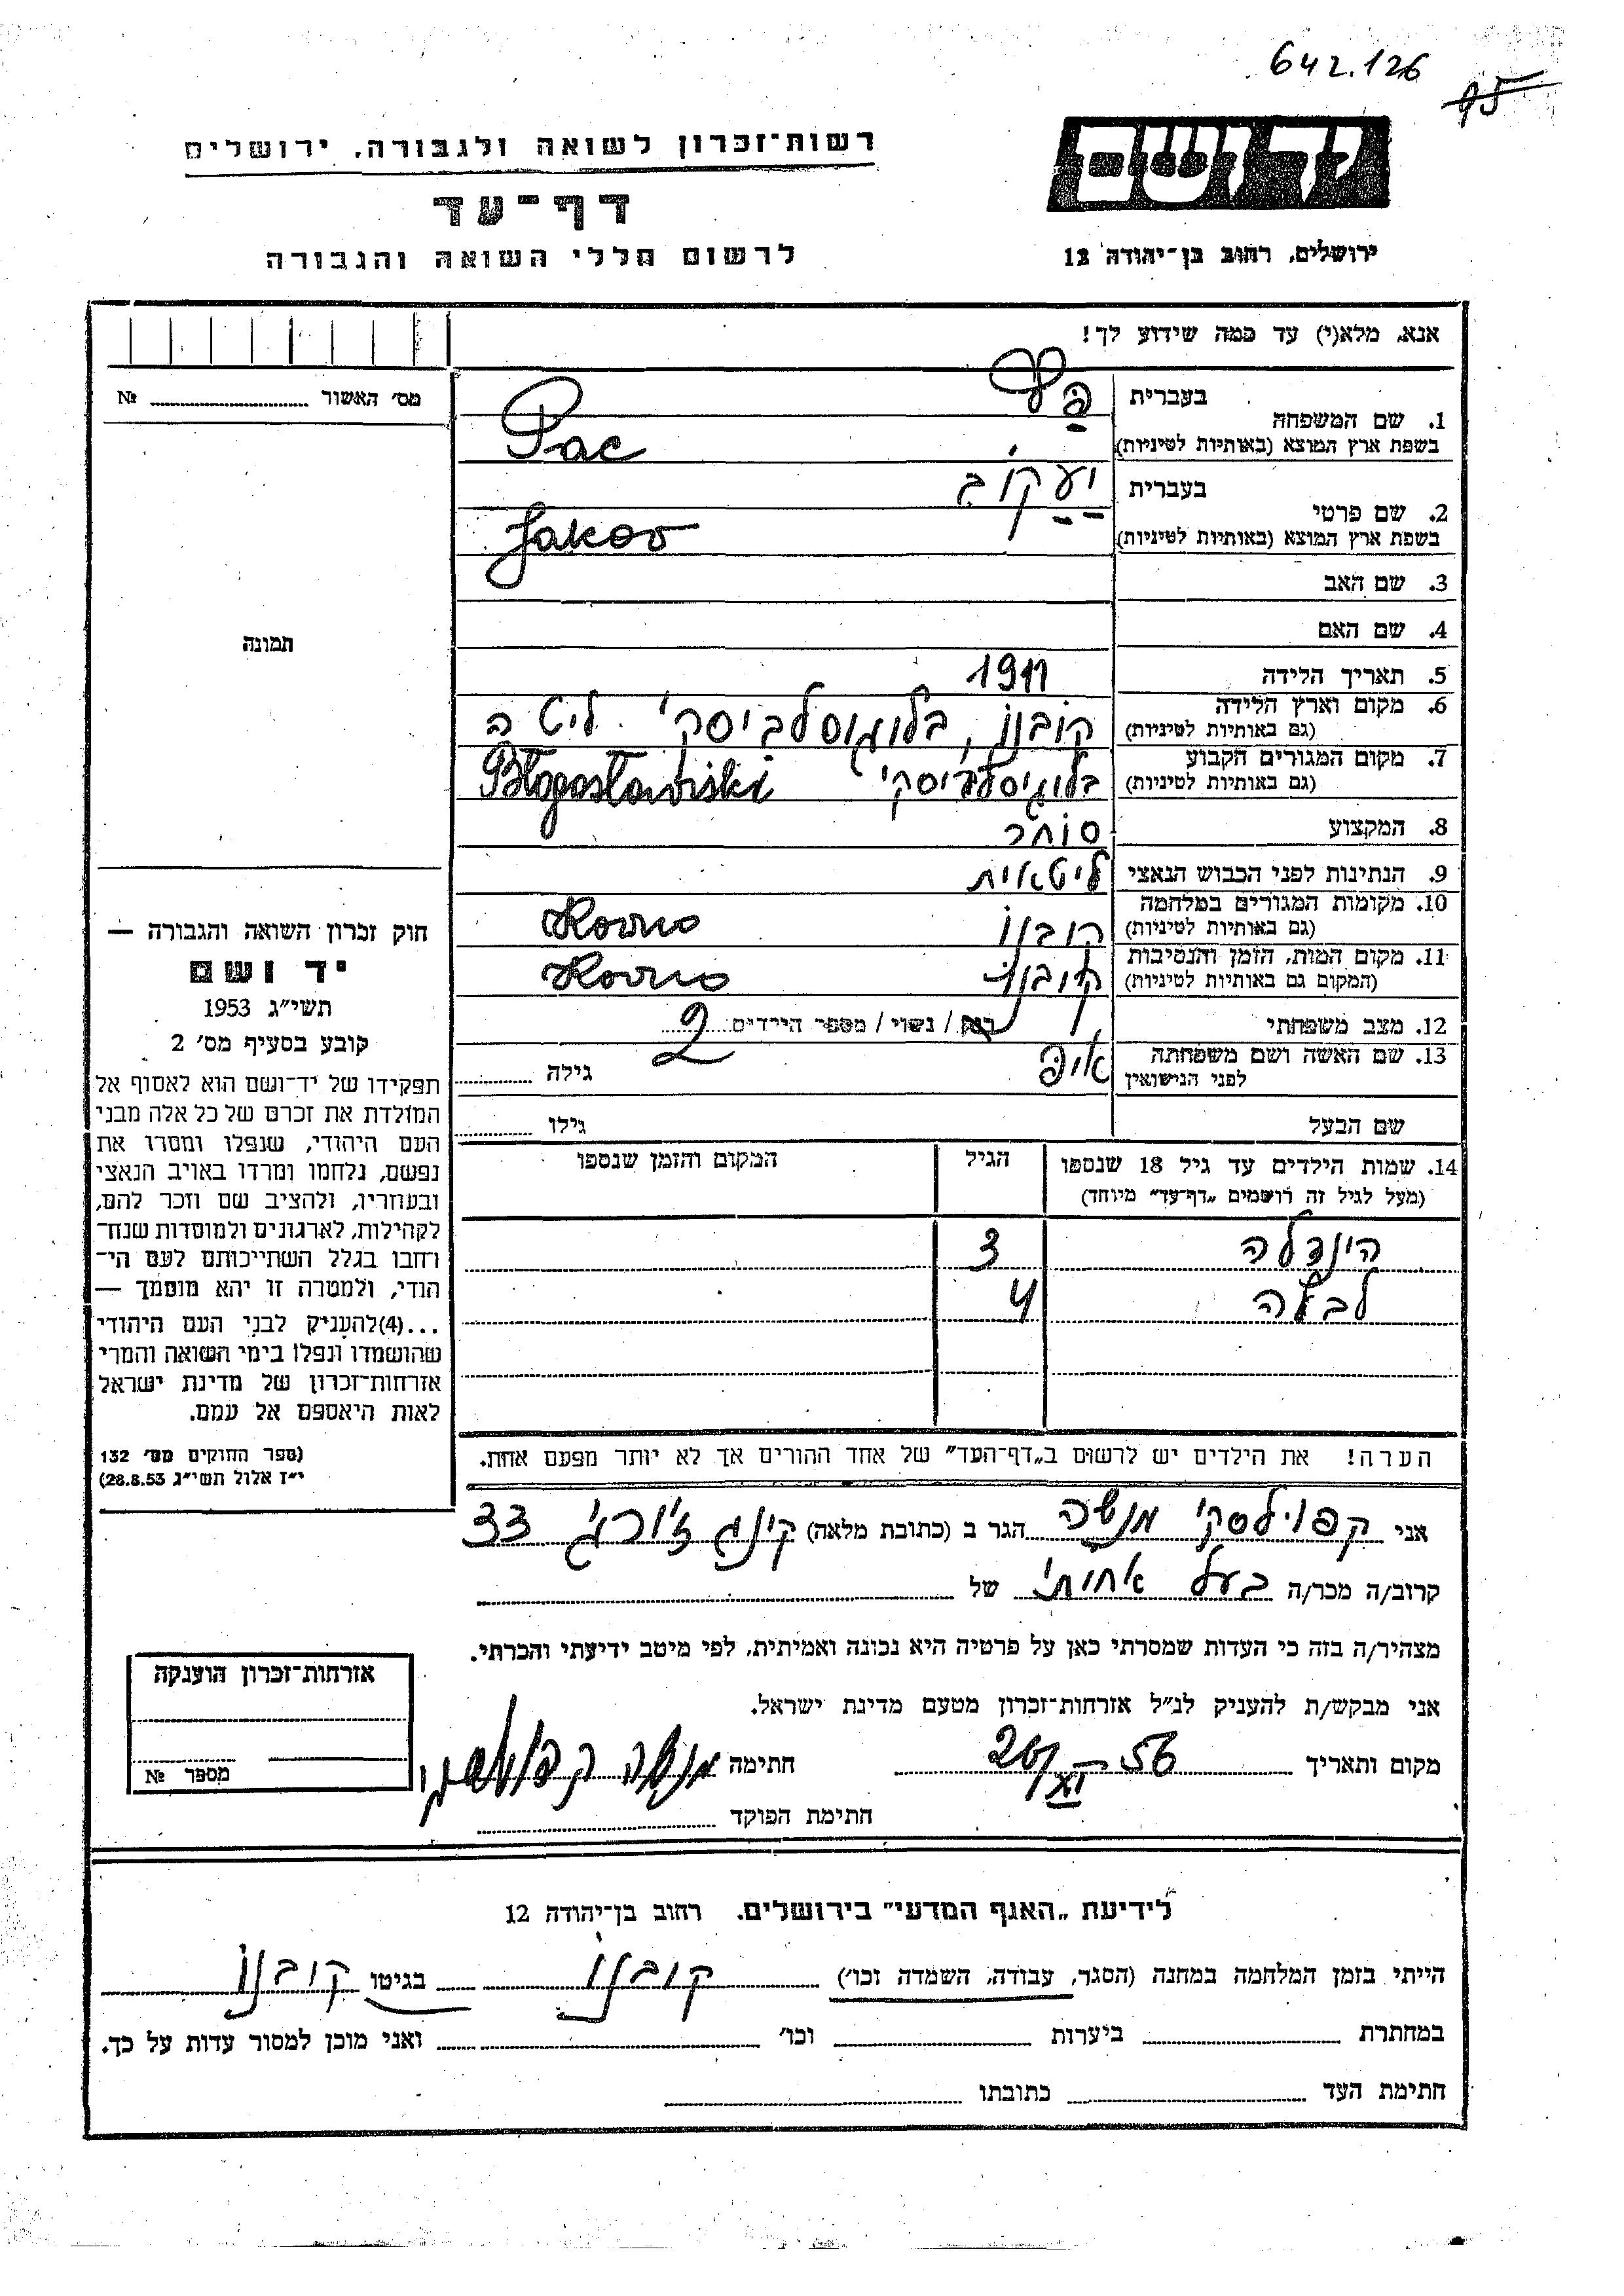 642.126
95
יד ושם
רשות־זכרון לשואה ולגבורה, ירושלים
דף־עד
לרשום חללי השואה והגבורה
ירושלים, רחוב בן־יהודה 12
אנא, מלא(י) עד כמה שידוע לך!
מס׳ האשור № 
1. שם המשפחה
בעברית
בשפת ארץ המוצא (באותיות לטיניות) Pac
2. שם פרטי
בעברית יעקוב
בשפת ארץ המוצא (באותיות לטיניות) Jakov
3. שם האב
4. שם האם
5. תאריך הלידה 1911
6. מקום וארץ הלידה
(גם באותיות לטיניות) קובנו, בלוגוסלביסקי ליטה
7. מקום המגורים הקבוע
(גם באותיות לטיניות) בלוגוסלביסקי Błogosławiski
8. המקצוע סוחר
9. הנתינות לפני הכבוש הנאצי ליטאית
10. מקומות המגורים במלחמה
(גם באותיות לטיניות) קובנו Kovno
11. מקום המות, הזמן והנסיבות
(המקום גם באותיות לטיניות) קובנו Kovno
12. מצב משפחתי רוק / נשוי / מספר הילדים 2
13. שם האשה ושם משפחתה
לפני הנישואין גילה
שם הבעל גילו
14. שמות הילדים עד גיל 18 שנספו
(מעל לגיל זה רושמים „דף־עד״ מיוחד)
הגיל
המקום והזמן שנספו
הינדלה 3
4
הערה! את הילדים יש לרשום ב„דף־העד״ של אחד ההורים אך לא יותר מפעם אחת.
תמונה
חוק זכרון השואה והגבורה —
יד ושם
תשי״ג 1953
קובע בסעיף מס׳ 2
תפקידו של יד־ושם הוא לאסוף אל
המולדת את זכרם של כל אלה מבני
העם היהודי, שנפלו ומסרו את
נפשם, נלחמו ומרדו באויב הנאצי
ובעוזריו, ולהציב שם וזכר להם,
לקהילות, לארגונים ולמוסדות שנח־
רחבו בגלל השתייכותם לעם הי־
הודי, ולמטרה זו יהא מוסמך —
...(4)להעניק לבני העם היהודי
שהושמדו ונפלו בימי השואה והמרי
אזרחות־זכרון של מדינת ישראל
לאות היאספם אל עמם.
(ספר החוקים מס׳ 132
י״ז אלול תשי״ג 28.8.53)
אני קפוילסקי מנשה הגר ב (כתובת מלאה) קינג ז׳ורג׳ 33
קרוב/ה מכר/ה בעל אחותי של
מצהיר/ה בזה כי העדות שמסרתי כאן על פרטיה היא נכונה ואמיתית, לפי מיטב ידיעתי והכרתי.
אני מבקש/ת להעניק לנ״ל אזרחות־זכרון מטעם מדינת ישראל.
מקום ותאריך 56 חתימה מנשה
חתימת הפוקד
אזרחות־זכרון הוענקה
מספר №
לידיעת „האגף המדעי״ בירושלים. רחוב בן־יהודה 12
הייתי בזמן המלחמה במחנה (הסגר, עבודה, השמדה וכו׳) קובנו בגיטו קובנו
במחתרת ביערות וכו׳ ואני מוכן למסור עדות על כך.
חתימת העד כתובתו